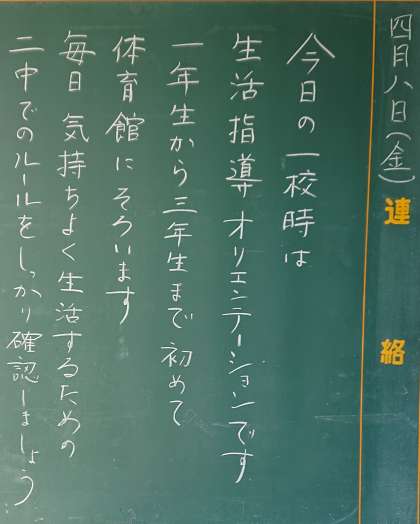 四月八日(金)
連絡
今日の一校時は
生活指導オリエンテーションです
一年生から三年生まで初めて
体育館にそろいます
毎日気持ちよく生活するための
二中でのルールをしっかり確認しましょう